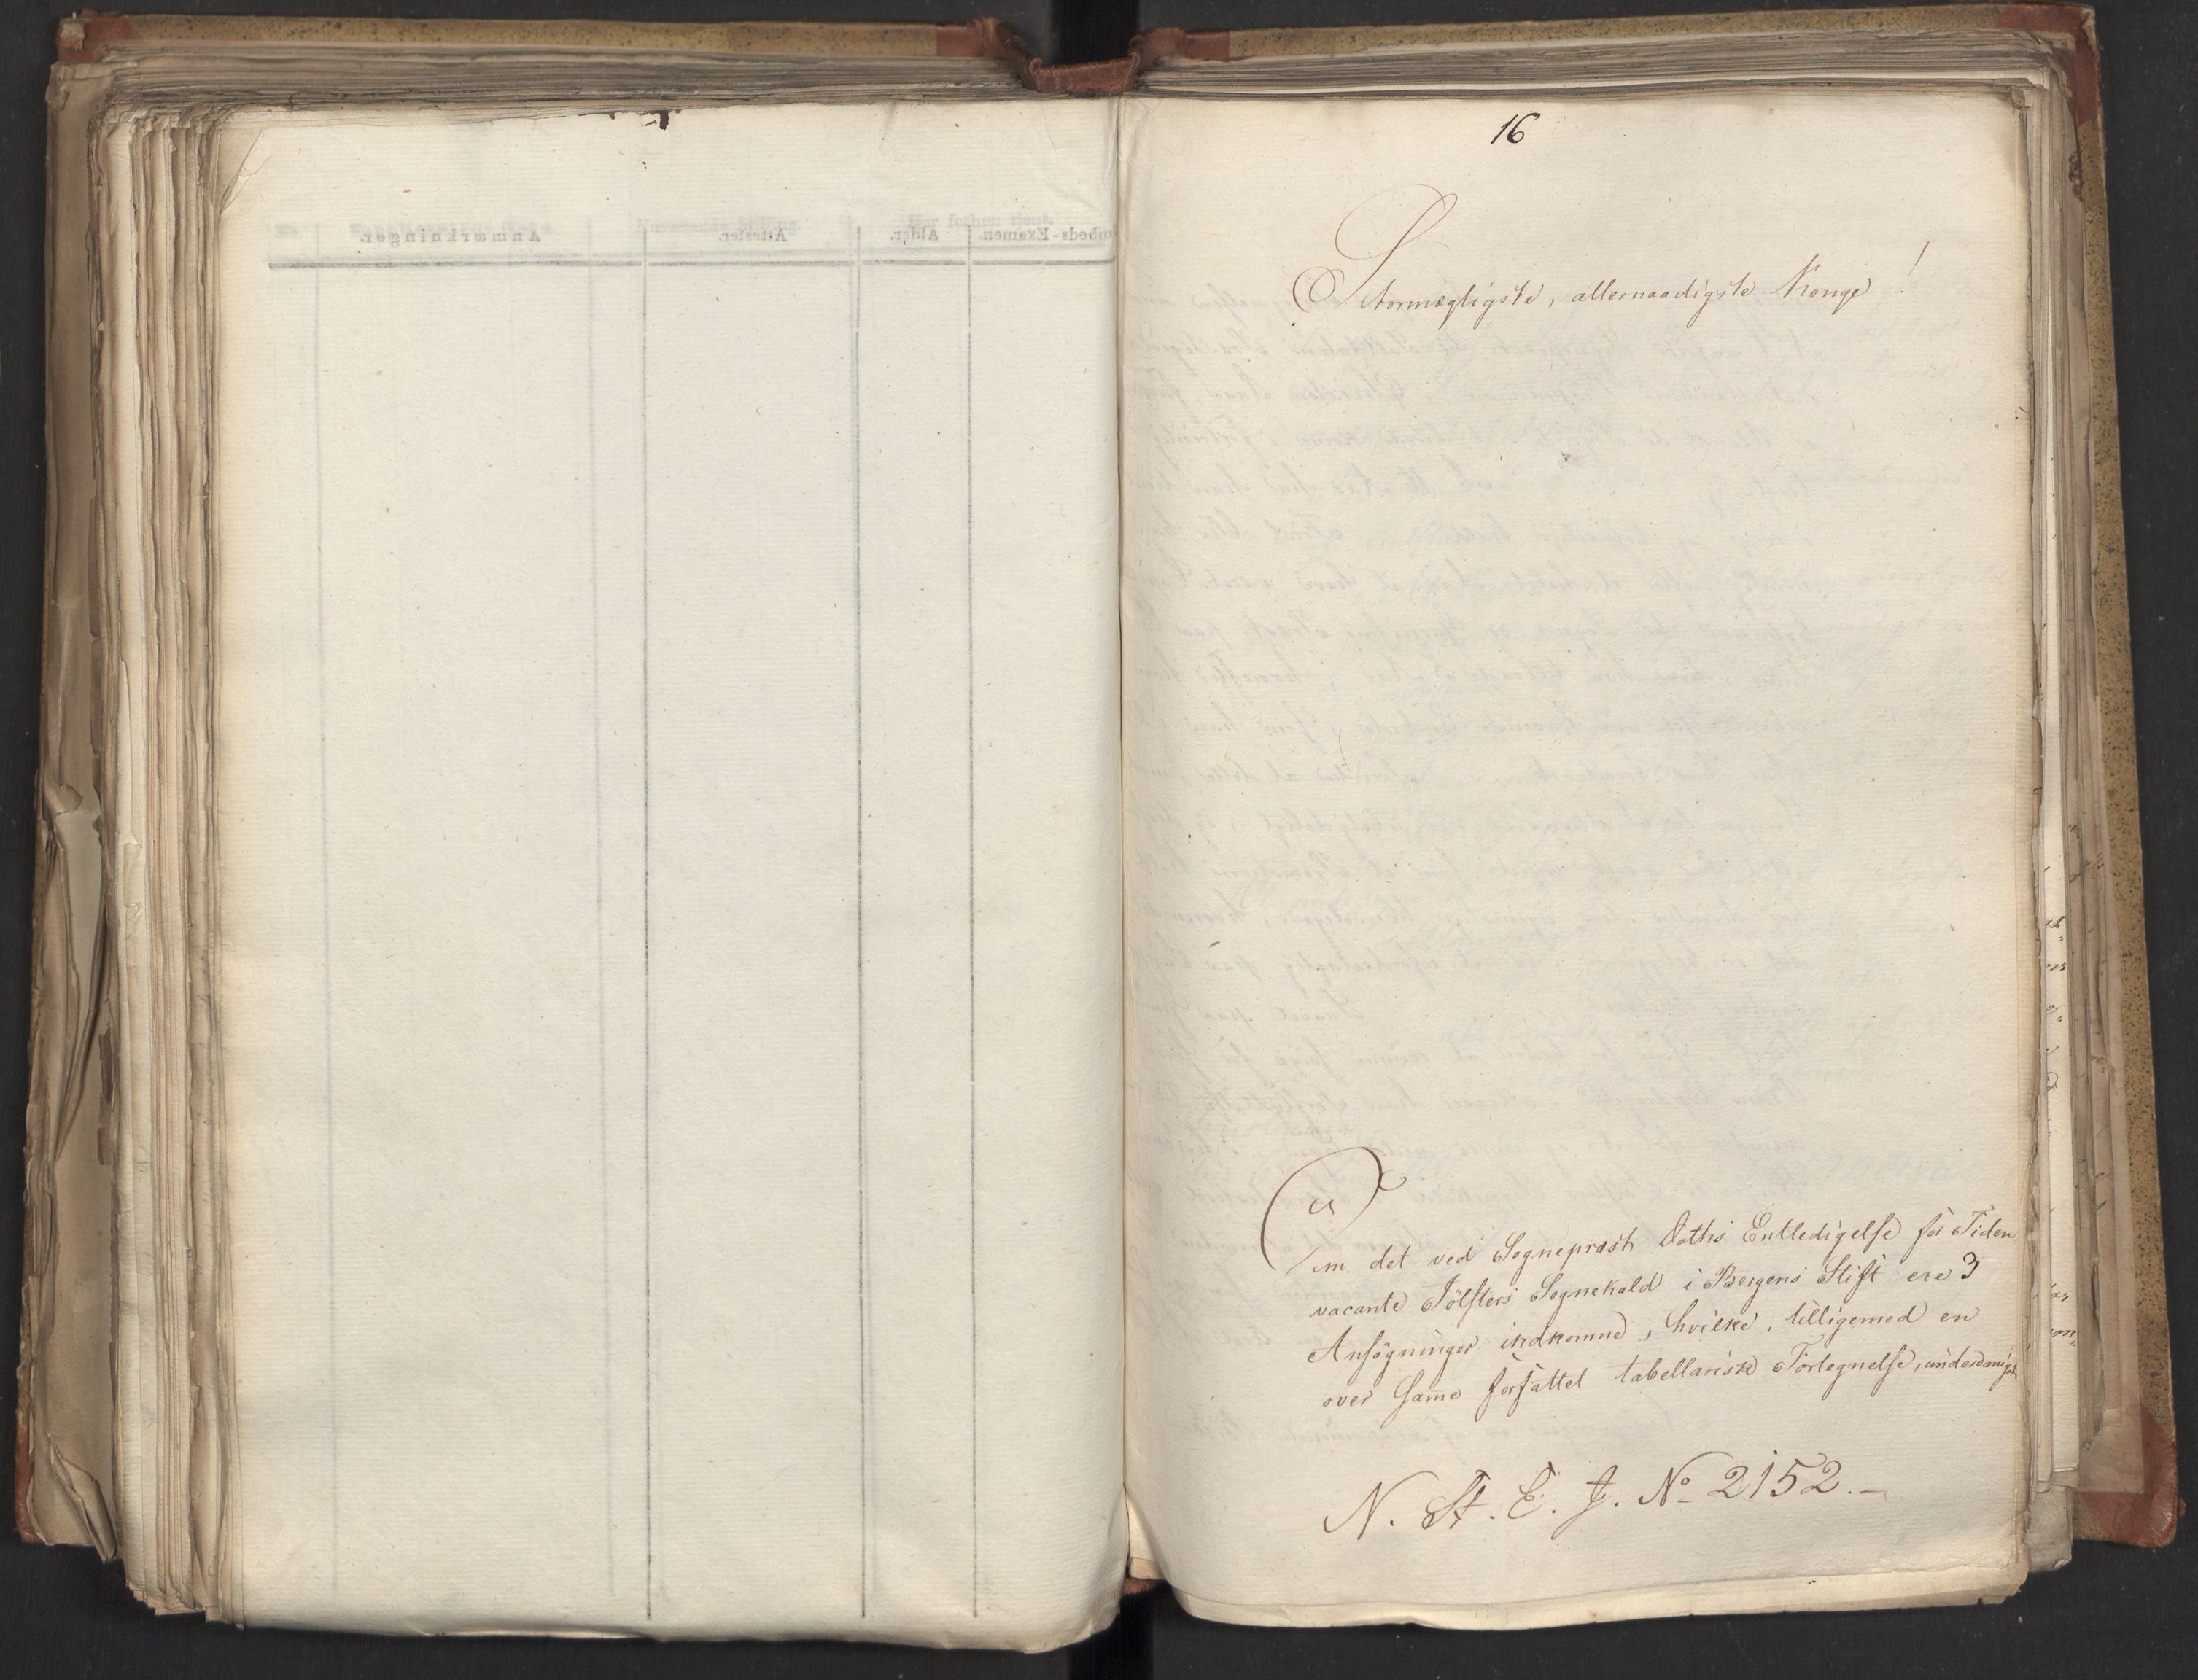 16
Stormægtigste, allernaadigste Konge!
Om det ved Sogneprest Daths Entledigelse for Tiden
vacante Jölsters Sognekald i Bergens Stift ere 3
Ansögninger indkomne, hvilke, tilligemed en
over samme forfattet tabellarisk Fortegnelse, underdanigst
N. St. E. J. No 2152.-